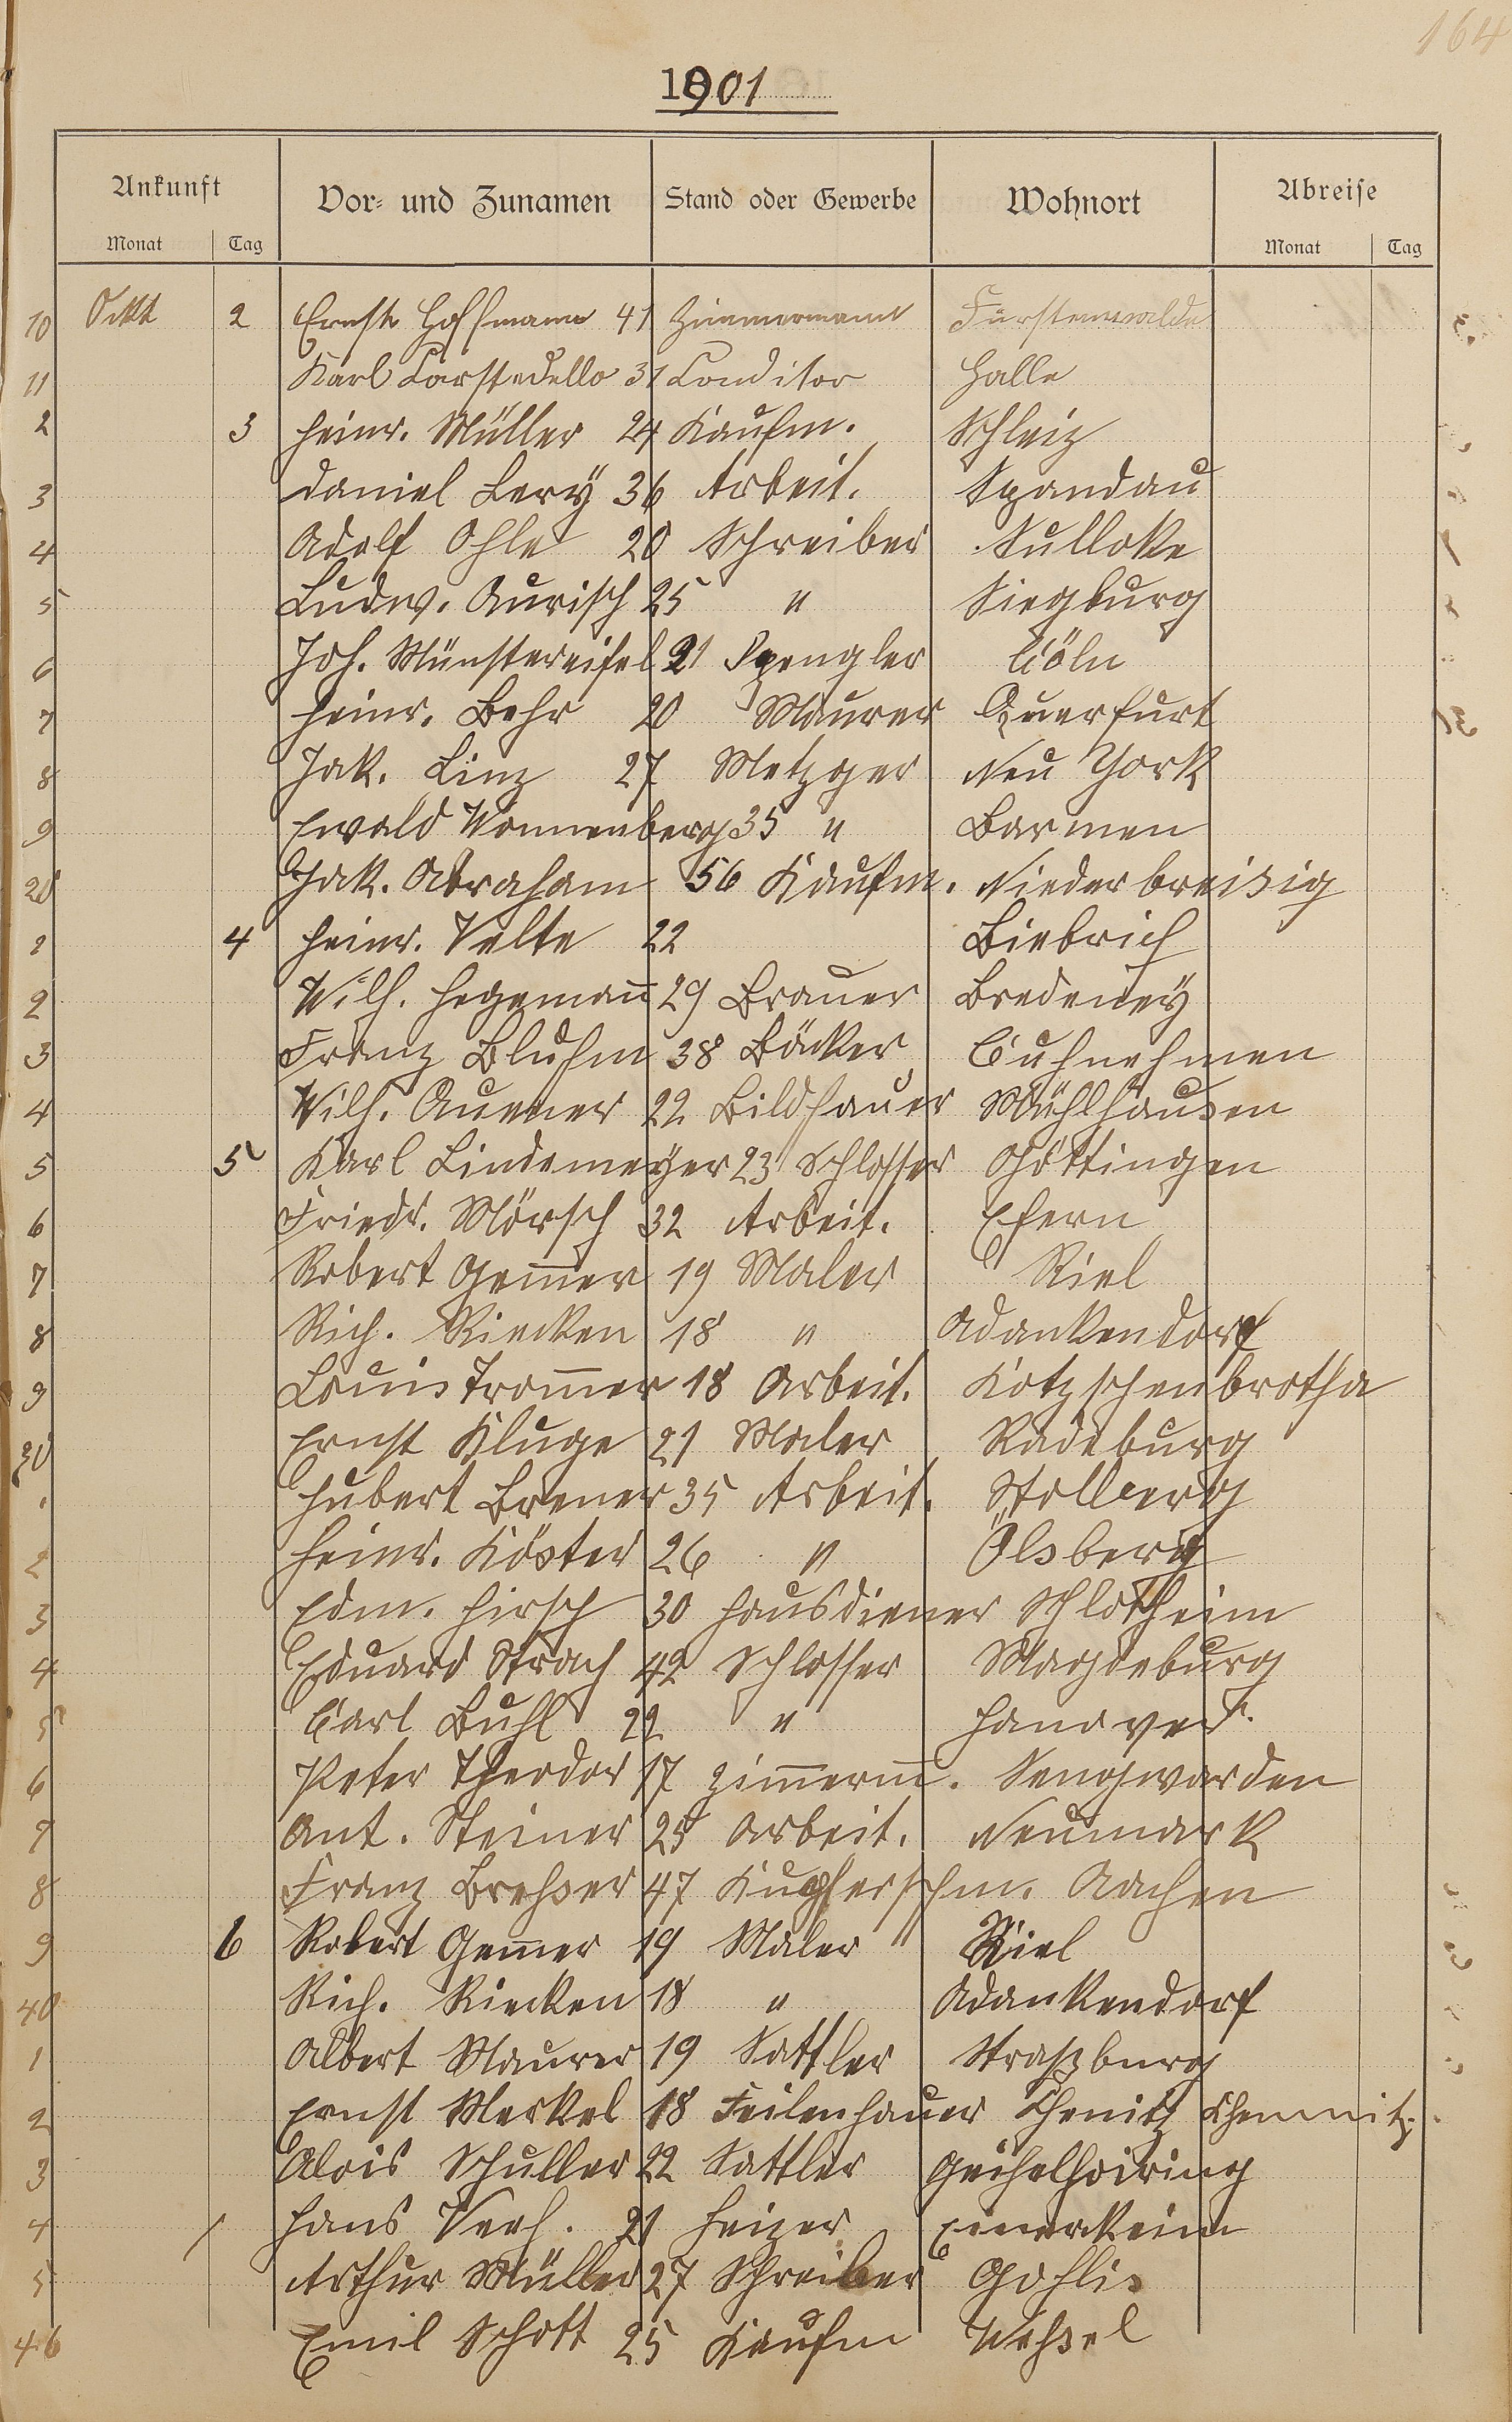 164
1901
Ankunft Vor- und Zunamen Stand oder Gewerbe Wohnort Abreise
Monat Tag Monat Tag
10 Okt 2 Ernst Hoffmann 41 Zimmermann Fürstenwalde
11 Karl Carstedello 31 Conditor Halle
2 3 Heinr. Müller 24 Kaufm. Schleiz
3 Daniel Lery 36 Arbeit. Spandau
4 Adolf Ohle 20 Schreiber Sulloke
5 Ludw. Aurisch 25 " Siegburg
6 Joh. Münstereifel 21 Spengler Cöln
7 Heinr. Behr 20 Maurer Querfurt
8 Jak. Linz 27 Metzger Neu York
9 Ewald Wonnenberg 35 " Barmen
20 Jak. Abraham 56 Kaufm. Niederbreisig
1 4 Heinr. Velte 22 Biebrich
2 Wilh. Hegemañ 29 Brauer Bredeney
3 Franz Bluhm 38 Bäcker Cuhnehmen
4 Wilh. Auener 22 Bildhauer Mühlhausen
5 5 Karl Lindemeyer 23 Schlosser Göttingen
6 Friedr. Mörsch 32 Arbeit. Efern
7 Robert Gem̄er 19 Maler Kiel
8 Rich. Riecken 18 " Adankendorf
9 Louis Trom̄er 18 Arbeit. Kotzschenbrotha
30 Ernst Kluge 21 Maler Radeburg
1 Hubert Brener 35 Arbeit. Stollberg
2 Heinr. Köster 26 " Ölsberg
3 Edm. Hirsch 30 Hausdiener Schlotheim
4 Eduard Strach 42 Schlosser Magdeburg
5 Carl Buhl 22 " Hanover.
6 Peter Theodor 17 Zim̄erm̄. Sengwarden
7 Ant. Steiner 25 Arbeit. Neumark
8 Franz Brehser 47 Kupferschm. Aachen
9 6 Robert Gem̄er 19 Maler Kiel
40 Rich. Riecken 18 " Adankendorf
1 Albert Maurer 19 Sattler Straszburg
2 Ernst Merkel 18 Feilenhauer Chenitz Chemnitz.
3 Alois Schuller 22 Sattler Geihelhöiring
4 / Hans Verh. 21 Heizer Einerkeim
5 Arthur Müller 27 Schreiber Gohlis
46 Emil Schott 25 Kaufm Wehsel